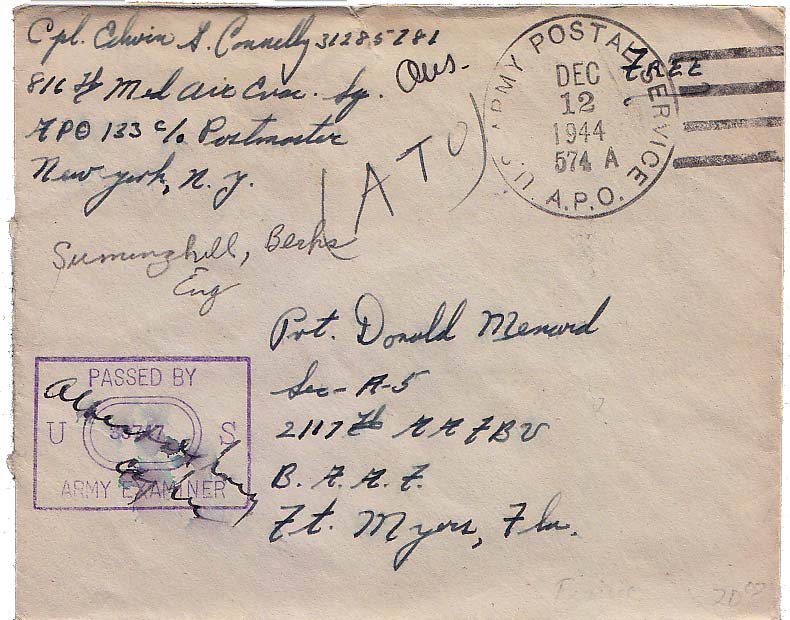 Cpl. Edwin S. Connelly 31285281
816th Med Air Evac. Sq.
Ans.
APO 133 c/o Postmaster
New York, N. Y.
U.S. ARMY POSTAL SERVICE
A.P.O.
DEC
12
1944
574 A
FREE
Sunninghill, Berks
Eng
Pvt. Donald Menard
Sec-A-5
2117th AAFBU
B. A. A. F.
Ft. Myers, Fla.
PASSED BY
U S
ARMY EXAMINER